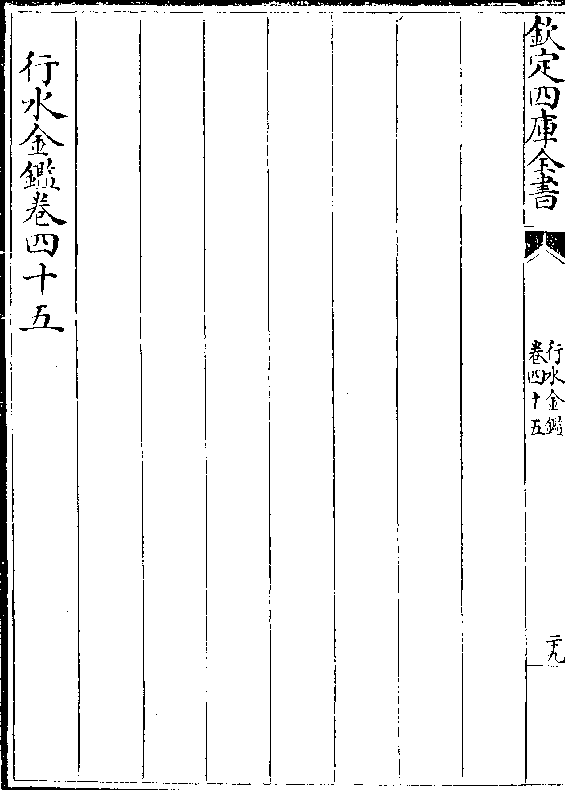 欽定四庫全書
行水金鑑
卷四十五
二十九
行水金鑑卷四十五